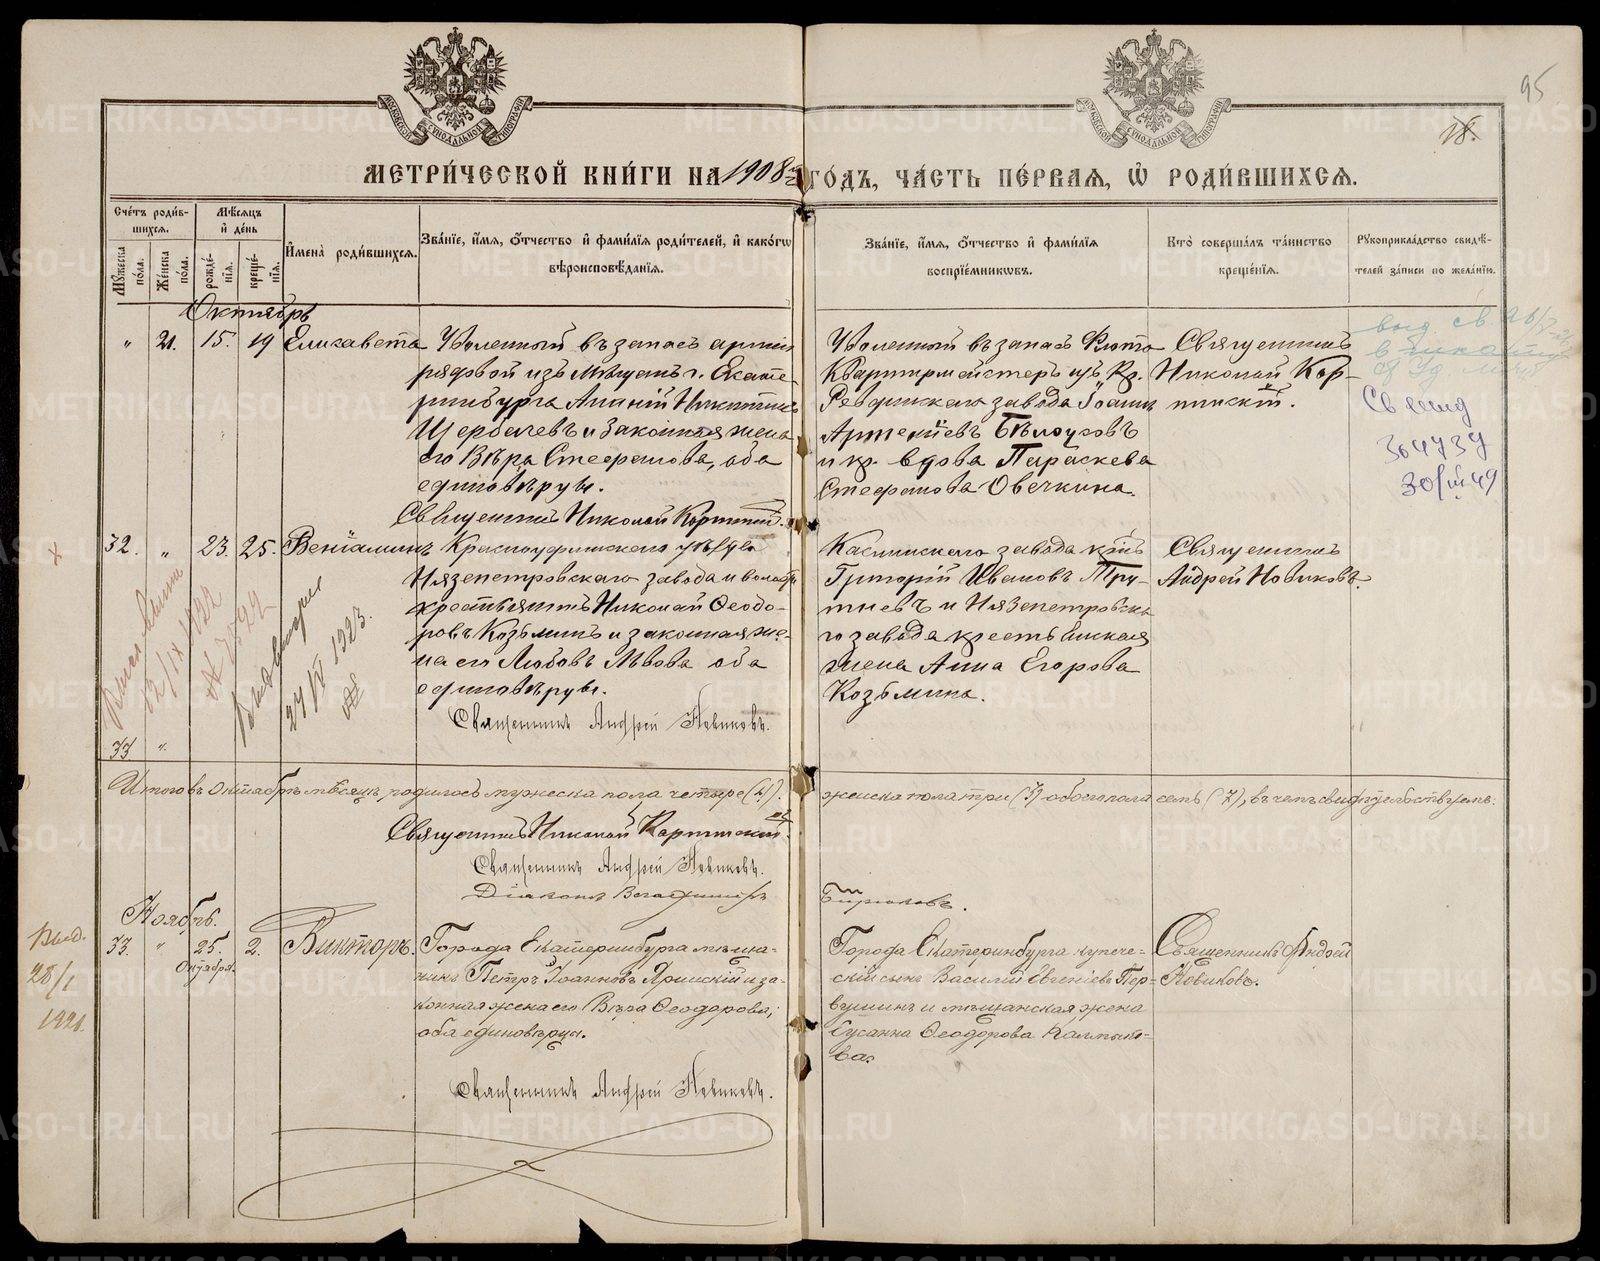 95
18.
МЕТРИ́ЧЕСКОЙ КНИ́ГИ НА 1908 ГО́ДЪ, ЧА́СТЬ ПЕ́РВАЯ, Ѡ РОДИ́ВШИХСЯ.
Сче́тъ роди́в-
шихся.
Мꙋ́жеска по́ла.
Же́нска по́ла.
Мѣ́сяцъ
и де́нь
рожде́-
нїя.
креще́-
нїя.
Имена̀ роди́вшихся.
Зва́нїе, и́мя, о́тчество и фами́лїя роди́телей, и како́гѡ
вѣроисповѣ́данїя.
Зва́нїе, и́мя, о́тчество и фами́лїя
воспрїе́мникѡвъ.
Кто̀ соверша́лъ та́инство
креще́нїя.
Рꙋкоприкла́дство свидѣ́-
телей за́писи по жела́нїю.
Октябрь
" 21. 15. 19 Елизавета
Уволенный въ запасъ армiи
рядовой изъ мѣщанъ г. Екате-
ринбурга Ананiй Никитинъ
Щербачевъ и законная жена
его Вѣра Стефанова, оба
единовѣрцы.
Священникъ Николай
Уволенный въ запасъ Флота
Квартирмейстеръ изъ кр.
Ревдинскаго завода Iоаннъ
Артемiевъ Бѣлоусовъ
и кр. вдова Параскева
Стефанова Овечкина.
Священникъ
Николай
30/III 49
32. " 23. 25. Венiаминъ
Красноуфимскаго уѣзда
Нязепетровскаго завода и волости
крестьянинъ Николай Ѳеодо-
ровъ Козьминъ и законная же-
на его Любовь Львова оба
единовѣрцы.
Священникъ Андрей Новиковъ.
Каслинскаго завода кр-нъ
Григорiй Ивановъ Тру-
тневъ и Нязепетровска-
го завода крестьянская
жена Анна Егорова
Козьмина.
Священникъ
Андрей Новиковъ.
27/IV 1923.
33 "
Итого въ Октябрѣ мѣсяцѣ родилось мужеска пола четыре (4). женска пола три (3) обоего пола семь (7), въ чемъ свидѣтельствуемъ:
Священникъ Николай
Священникъ Андрей Новиковъ.
Дiаконъ
Бирюковъ.
Ноябрь.
33. " 25. 2. Викторъ.
Октября.
Города Екатеринбурга мѣща-
нинъ Петръ Iоанновъ Яринскiй и за-
конная жена его Вѣра Ѳеодорова,
оба единовѣрцы.
Священникъ Андрей Новиковъ.
Города Екатеринбурга купече-
скiй сынъ Василiй Евгенiевъ Пер-
вушинъ и мѣщанская жена
Сусанна Ѳеодорова Калмыко-
ва.
Священникъ Андрей
Новиковъ.
Выд.
28/I
1921.
METRIKI.GASO-URAL.RU